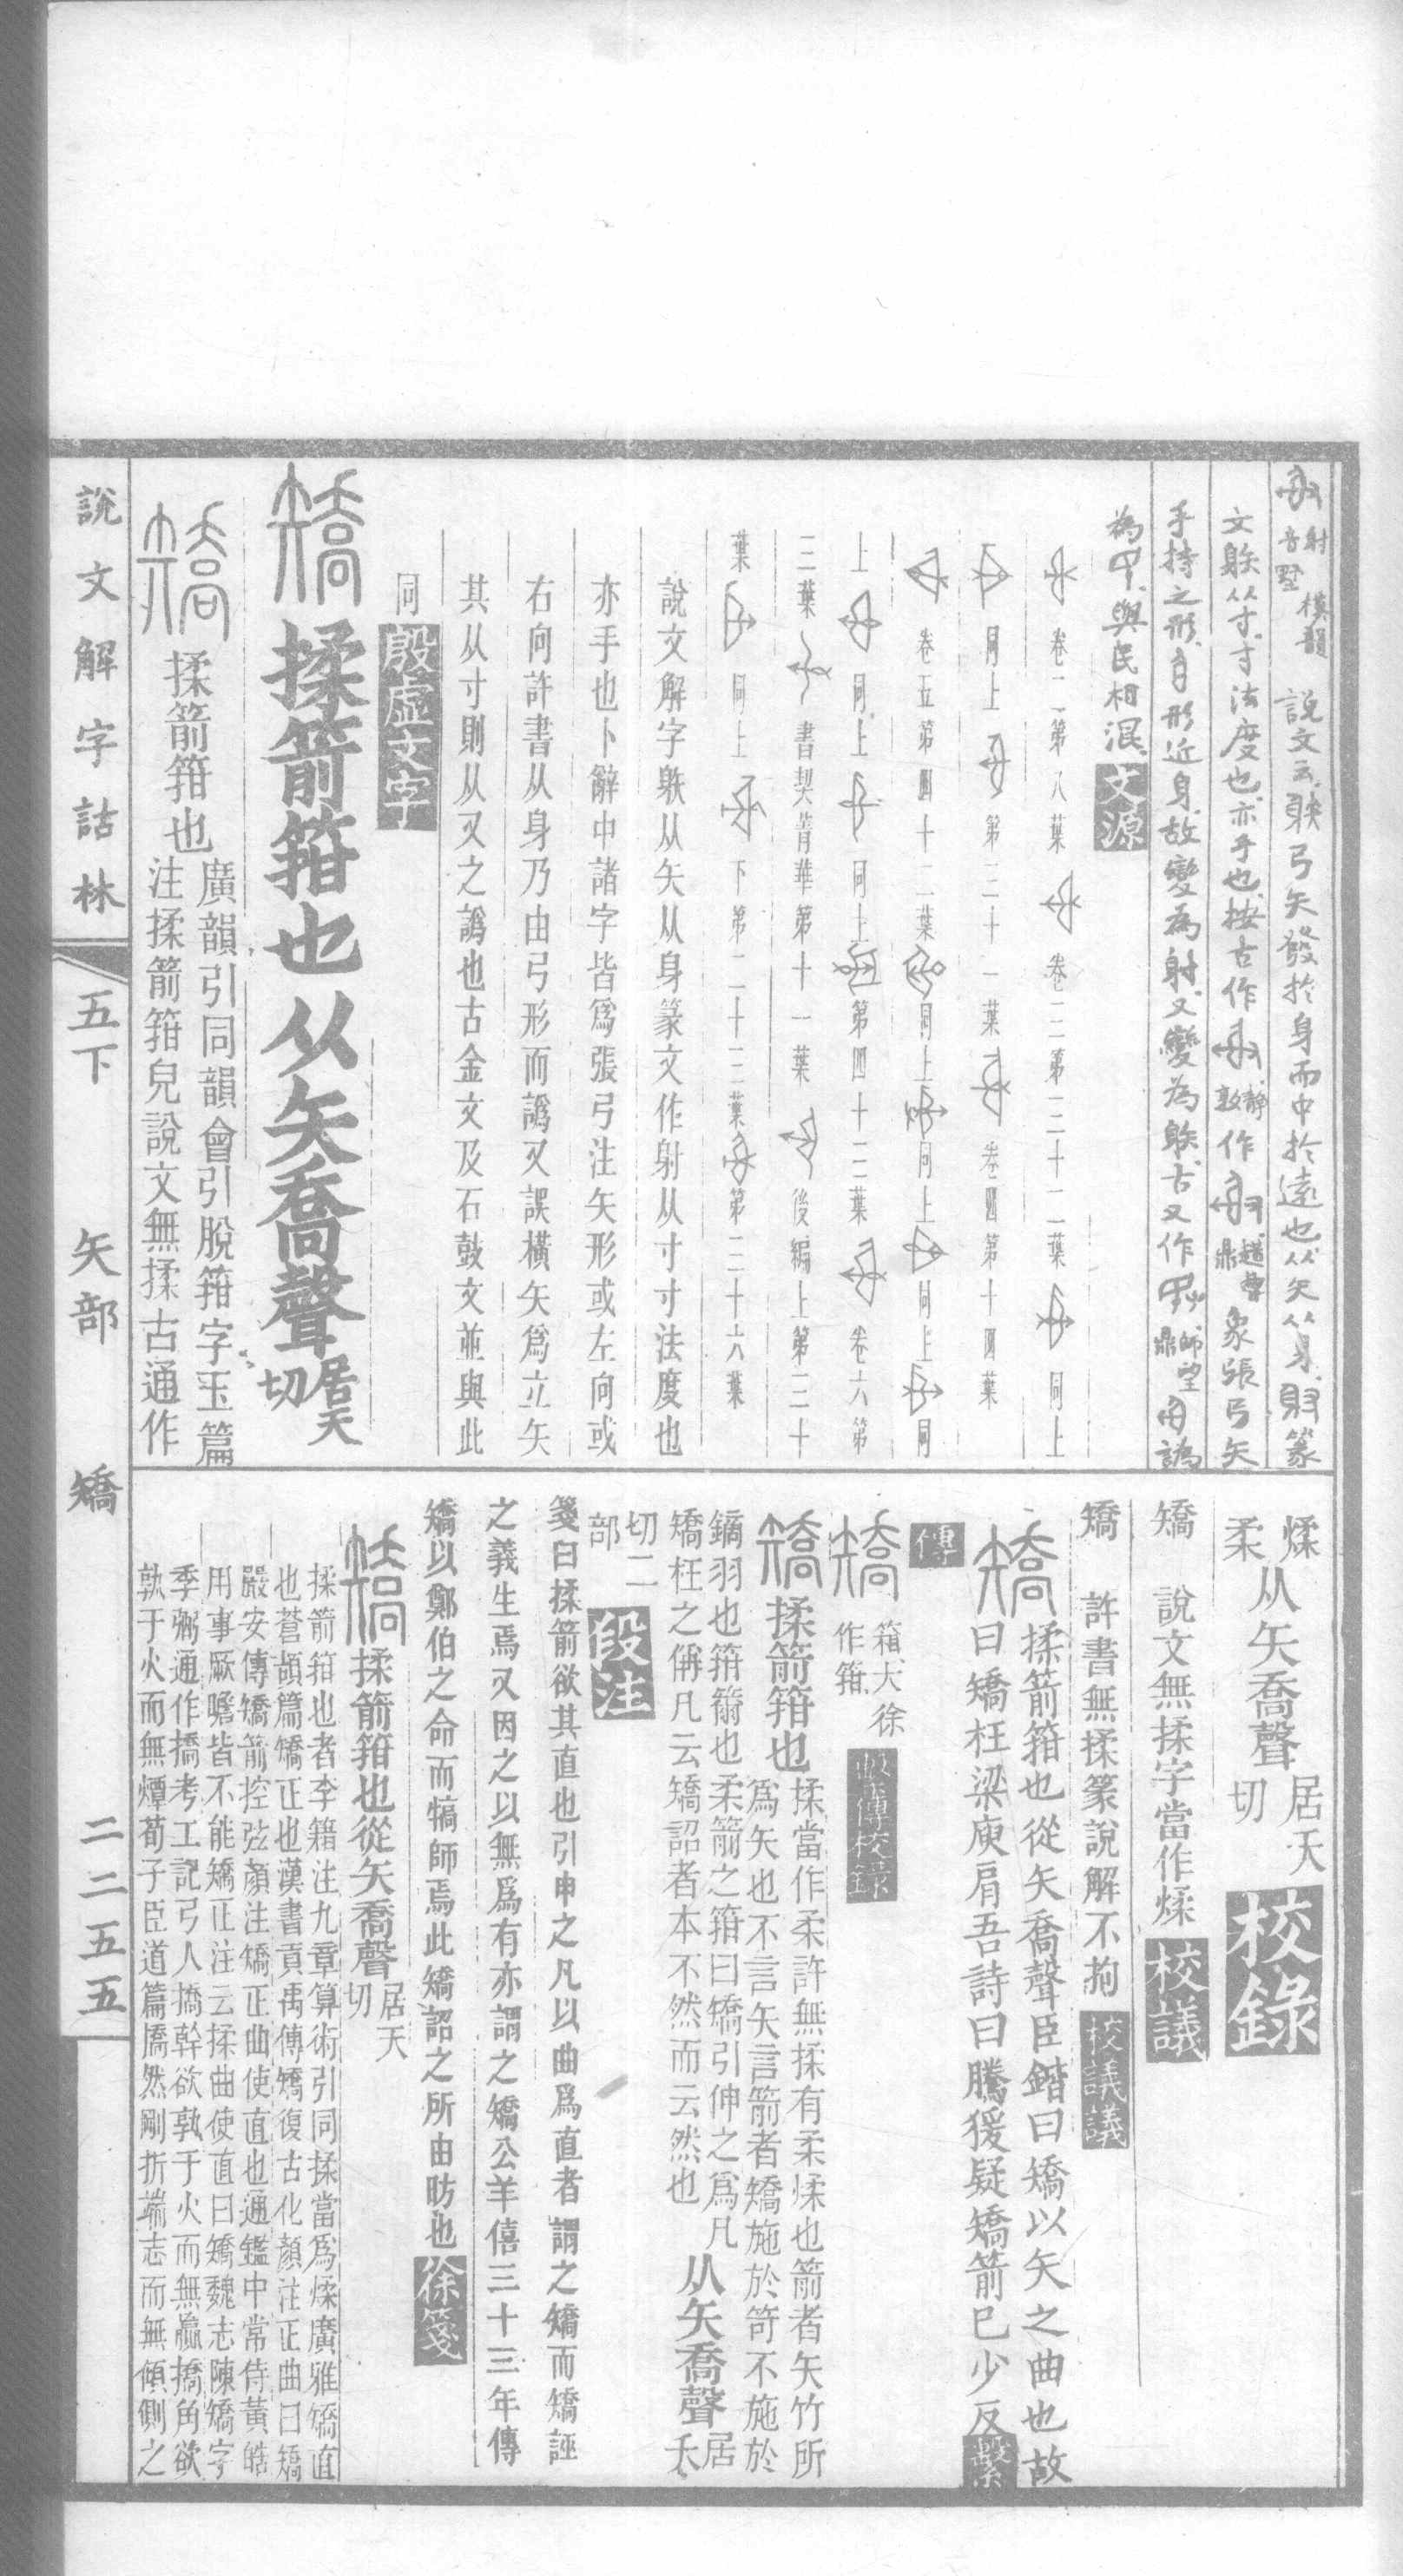 射模韻音墅 說文云躲弓矢發於身而中於遠也从矢从身射篆
文躲从寸寸法度也亦手也按古作靜敦作趞曹鼎象張弓矢
手持之形身形近身故變為射又變為躲古又作師望鼎譌
為與民相混文源
卷二第八葉 卷三第三十二葉 同上
同上 第三十一葉 卷四第十四葉
卷五第四十二葉 同上 同上 同上 同
上 同上 同上 第四十三葉 卷六第
三葉 書契菁華第十一葉 後編上第三十
葉 同上 下第二十三葉 第三十六葉
說文解字躲从矢从身篆文作射从寸寸法度也
亦手也卜辭中諸字皆爲張弓注矢形或左向或
右向許書从身乃由弓形而譌又誤橫矢爲立矢
其从寸則从又之譌也古金文及石鼓文並與此
同殷虛文字
矯 揉箭箝也从矢喬聲居夭切
矯 揉箭箝也廣韻引同韻會引脫箝字玉篇
注揉箭箝皃說文無揉古通作
煣柔从矢喬聲居夭切校錄
矯 說文無揉字當作煣校議
矯 許書無揉篆說解不拘校議議
矯 揉箭箝也從矢喬聲臣鍇曰矯以矢之曲也故
曰矯枉梁庾肩吾詩曰騰猨疑矯箭已少反繫
傳
矯 箱大徐作箝繫傳校錄
矯 揉箭箝也揉當作柔許無揉有柔煣也箭者矢竹所
爲矢也不言矢言箭者矯施於笴不施於
鏑羽也箝籋也柔箭之箝曰矯引伸之爲凡
矯枉之偁凡云矯詔者本不然而云然也从矢喬聲居夭
切二部段注
箋曰揉箭欲其直也引申之凡以曲爲直者謂之矯而矯誣
之義生焉又因之以無爲有亦謂之矯公羊僖三十三年傳
矯以鄭伯之命而犒師焉此矯詔之所由昉也徐箋
矯 揉箭箝也從矢喬聲居夭切
揉箭箝也者李籍注九章算術引同揉當爲煣廣雅矯直
也蒼頡篇矯正也漢書貢禹傳矯復古化顏注正曲曰矯
嚴安傳矯箭控弦顏注矯正曲使直也通鑑中常侍黃皓
用事厥瞻皆不能矯正注云揉曲使直曰矯魏志陳矯字
季弼通作撟考工記弓人撟幹欲孰于火而無贏撟角欲
孰于火而無燂荀子臣道篇撟然剛折端志而無傾側之
說文解字詁林 五下 矢部 矯 二二五五